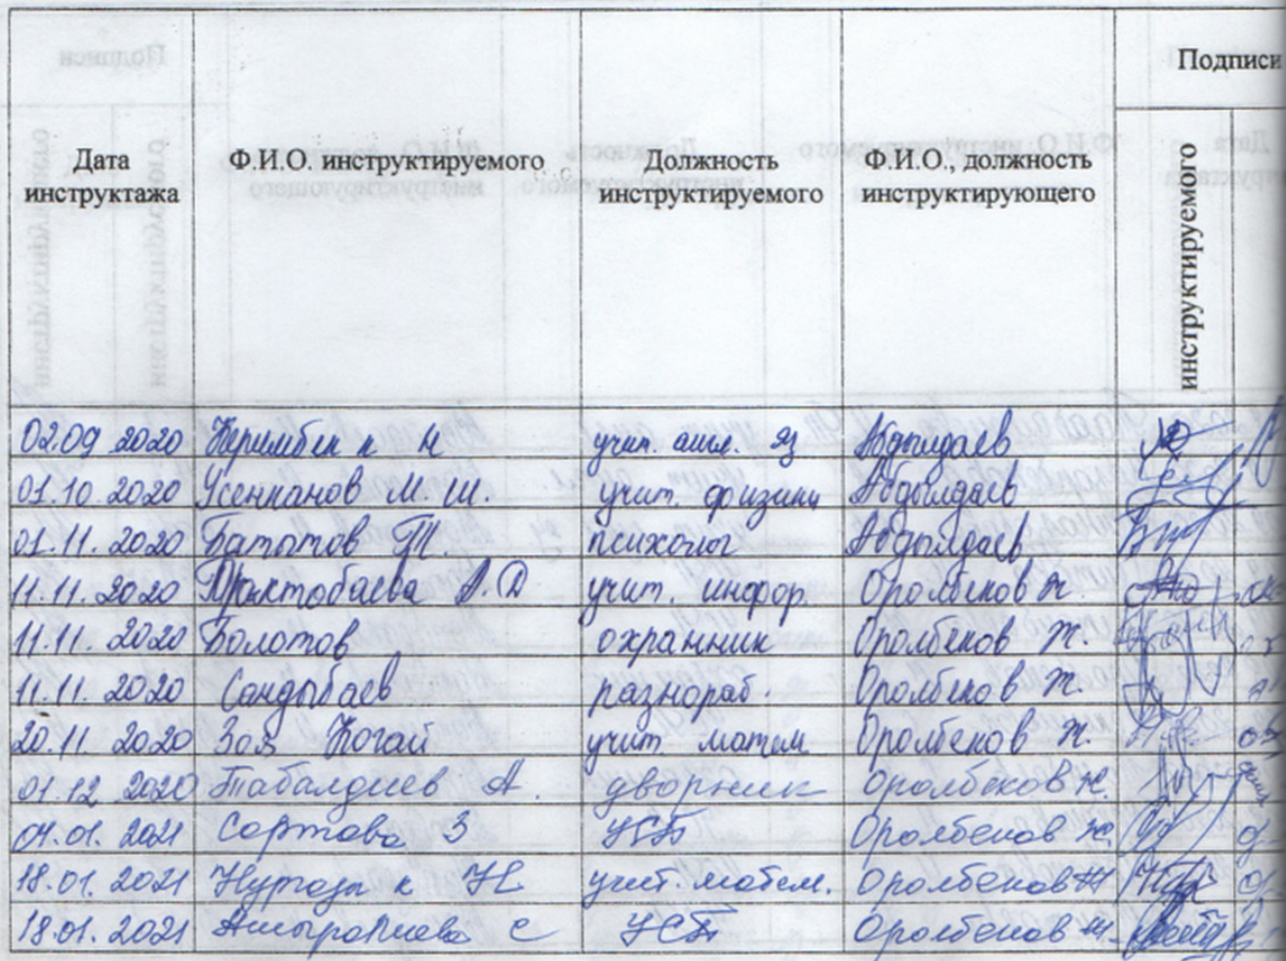 Подписи
Дата инструктажа
Ф.И.О. инструктируемого
Должность инструктируемого
Ф.И.О., должность инструктирующего
инструктируемого
02.09 2020 Керимбек к Н учит. англ. яз Абдылдаев
01.10.2020 Усенканов М.Ш. учит. физики Абдылдаев
01.11.2020 Батытов Т. психолог Абдылдаев
11.11.2020 А.Д учит. инфор. Оролбеков Ж.
11.11.2020 Болотов охранник Оролбеков Ж.
11.11.2020 Сандыбаев разнораб. Оролбеков Ж.
20.11.2020 Зоя Когай учит матем Оролбеков Ж.
01.12 2020 Табалдиев А. дворник Оролбеков Ж.
01.2021 Сартова З Оролбеков Ж.
18.01.2021 Нургазы к Н учит. матем. Оролбеков Ж
18.01.2021 с УСП Оролбеков Ж.